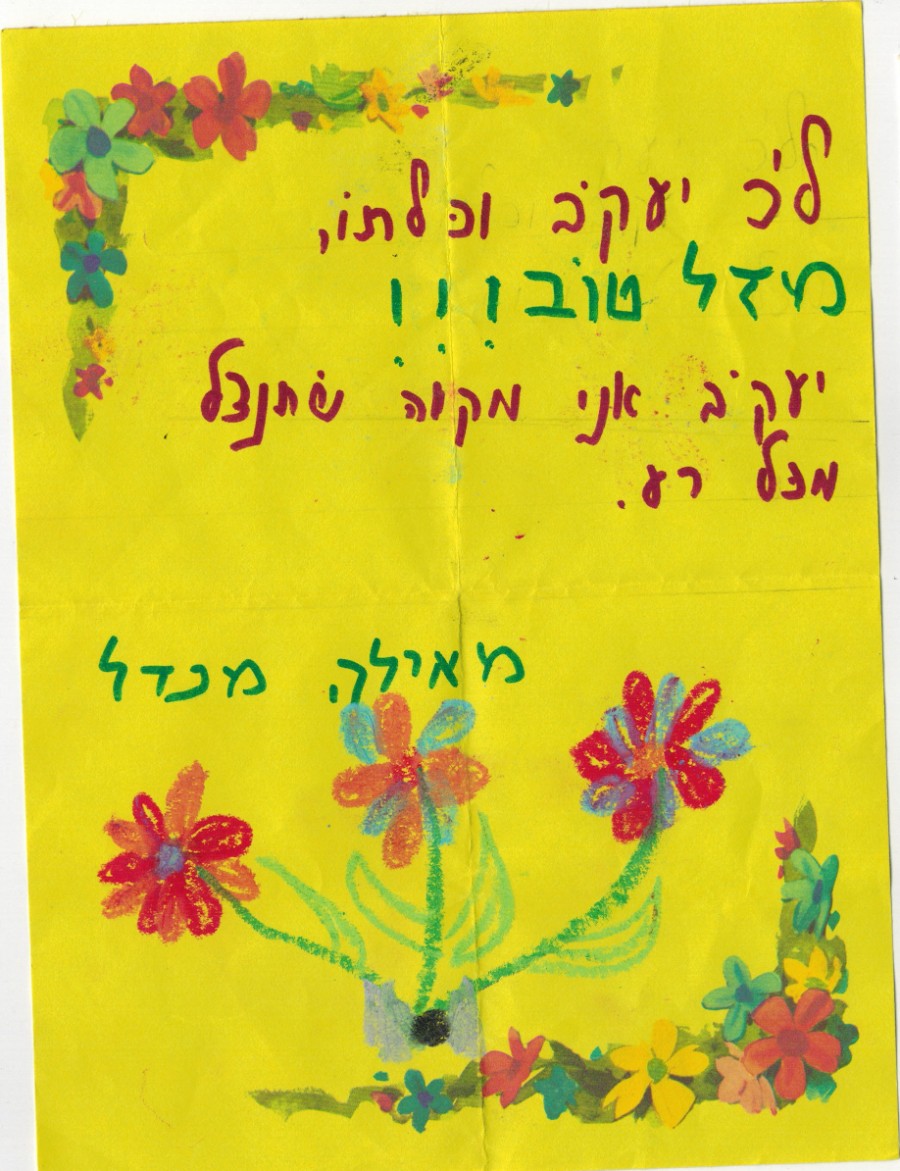 לכ' יעקב וכלתו,
מזל טוב!!!
יעקב אני מקוה שתנצל
מכל רע.
מאילה מנדל